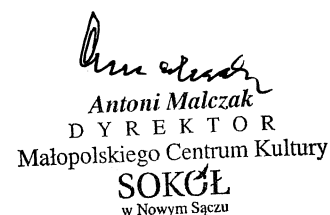 Antoni Malczak
D Y R E K T O R
Małopolskiego Centrum Kultury
SOKÓŁ
w Nowym Sączu